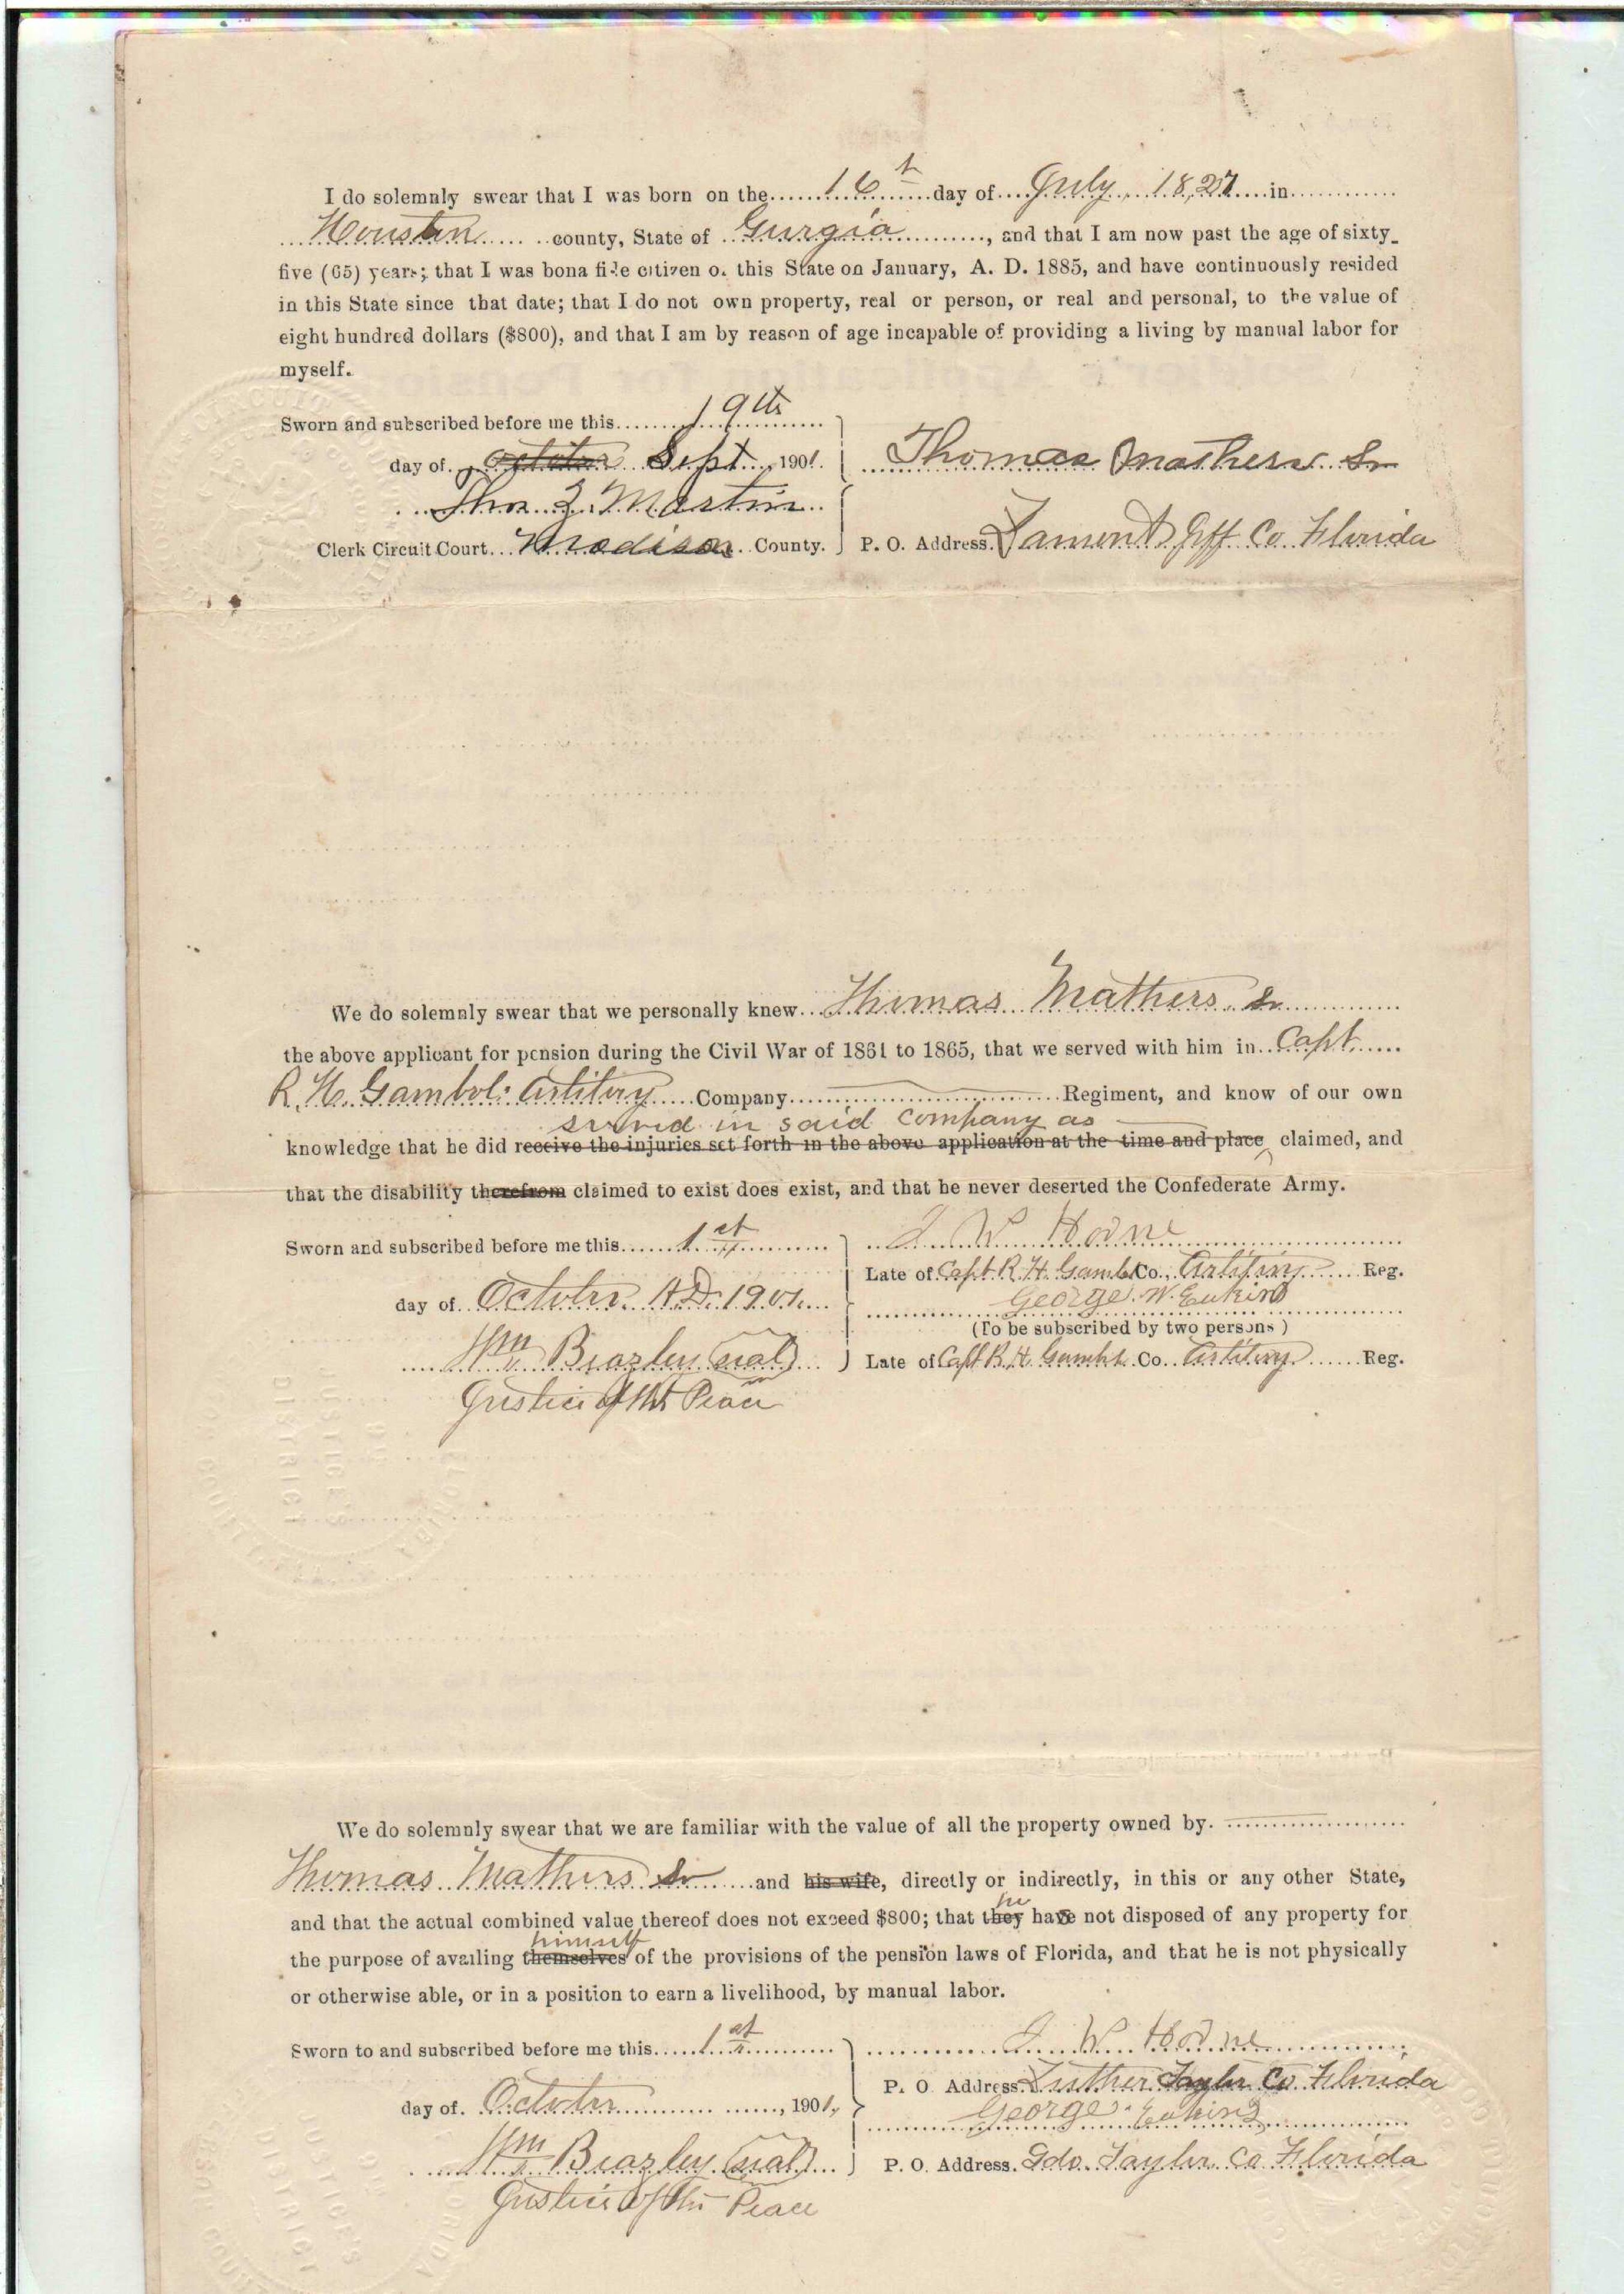 I do solemnly swear that I was born on the 16th day of July 1827 in
Houston county, State of Gurgia, and that I am now past the age of sixty-
five (65) years; that I was bona fide citizen of this State on January, A. D. 1885, and have continuously resided
in this State since that date; that I do not own property, real or person, or real and personal, to the value of
eight hundred dollars ($800), and that I am by reason of age incapable of providing a living by manual labor for
myself.
Sworn and subscribed before me this 19th
day of October Sept, 1901. Thomas Mathers Sr
Martin
Clerk Circuit Court Madison County. P. O. Address. Lamont Jeff Co Florida
We do solemnly swear that we personally knew Thomas Mathers Sr
the above applicant for pension during the Civil War of 1861 to 1865, that we served with him in Capt
R. H. Gambols Artilery Company Regiment, and know of our own
served in said company as
knowledge that he did receive the injuries set forth in the above application at the time and place claimed, and
that the disability therefrom claimed to exist does exist, and that he never deserted the Confederate Army.
Sworn and subscribed before me this 1st J W Horne
Late of Capt R. H. Gambl Co., Artilery Reg.
day of October A.D. 1901 George W. Eakins
(To be subscribed by two persons)
Wm Beazley (seal) Late of Capt R. H. Gambl Co. Artilery Reg.
Justice of the Peace
JUSTICE'S
DISTRICT
We do solemnly swear that we are familiar with the value of all the property owned by.
Thomas Mathers Sr and his wife, directly or indirectly, in this or any other State,
he
and that the actual combined value thereof does not exceed $800; that they have not disposed of any property for
himself
the purpose of availing themselves of the provisions of the pension laws of Florida, and that he is not physically
or otherwise able, or in a position to earn a livelihood, by manual labor.
Sworn to and subscribed before me this 1st J W Horne
P. O. Address. Luther Taylor Co Florida
day of October, 1901, George Eakins
Wm Beazley (seal) P. O. Address. Taylor Co Florida
Justice of the Peace